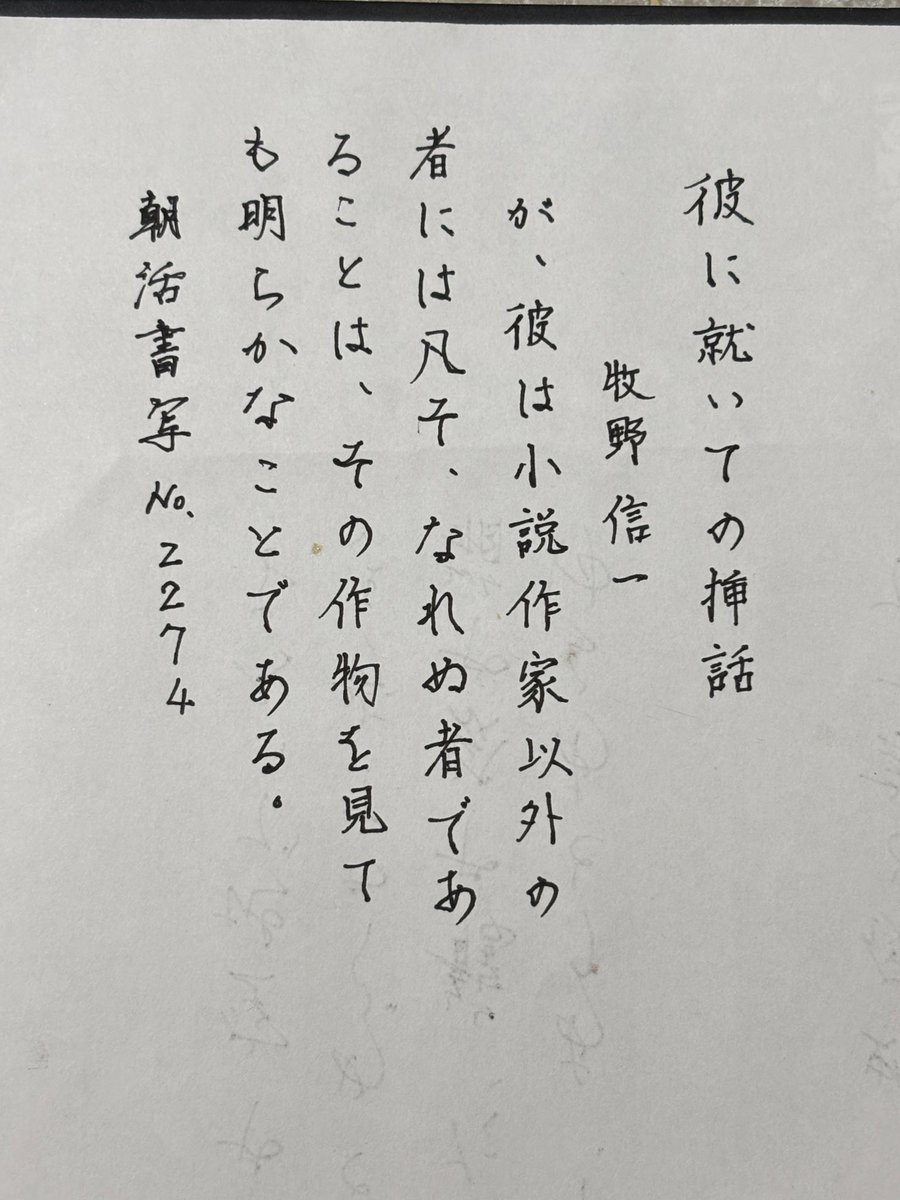 彼に就いての挿話
牧野信一
が、彼は小説作家以外の
者には凡そ、なれぬ者であ
ることは、その作物を見て
も明らかなことである。
朝活書写No.2274